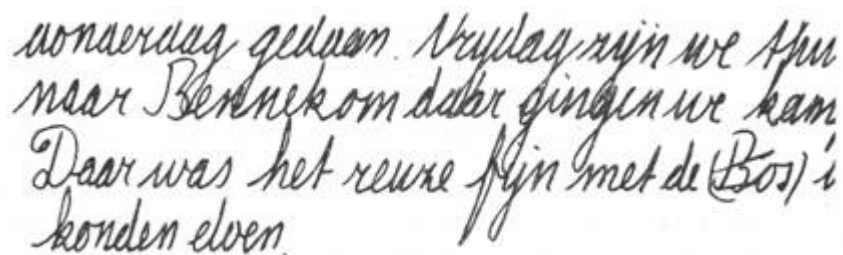 donderdag gedaan. Vrydag zijn we thu
naar Bennekom daar gingen we kam
Daar was het reuze fijn met de (Bos) i
konden elven.